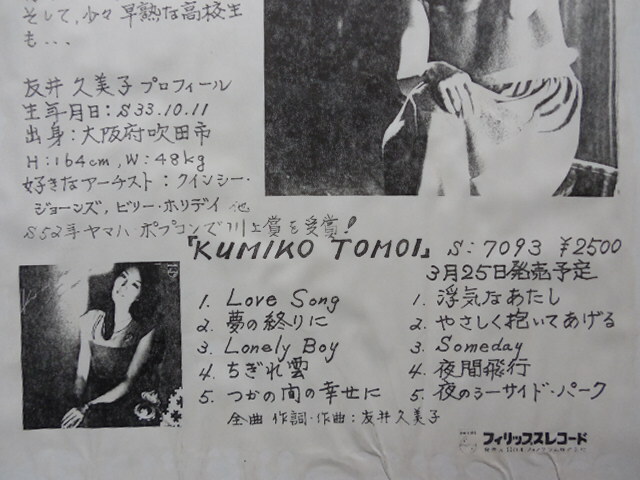 そして、少々早熟な高校生
も...
友井久美子プロフィール
生年月日:S33.10.11
出身:大阪府吹田市
H:164cm,W:48kg
好きなアーチスト:クインシー・
ジョーンズ,ビリー・ホリデイ他
S52年ヤマハ・ポプコンで川上賞を受賞!
『KUMIKO TOMOI』 S:7093 ¥2500
3月25日発売予定
1. Love Song
2. 夢の終りに
3. Lonely Boy
4. ちぎれ雲
5. つかの間の幸せに
1. 浮気なあたし
2. やさしく抱いてあげる
3. Someday
4. 夜間飛行
5. 夜のシーサイド・パーク
全曲 作詞・作曲:友井久美子
フィリップスレコード